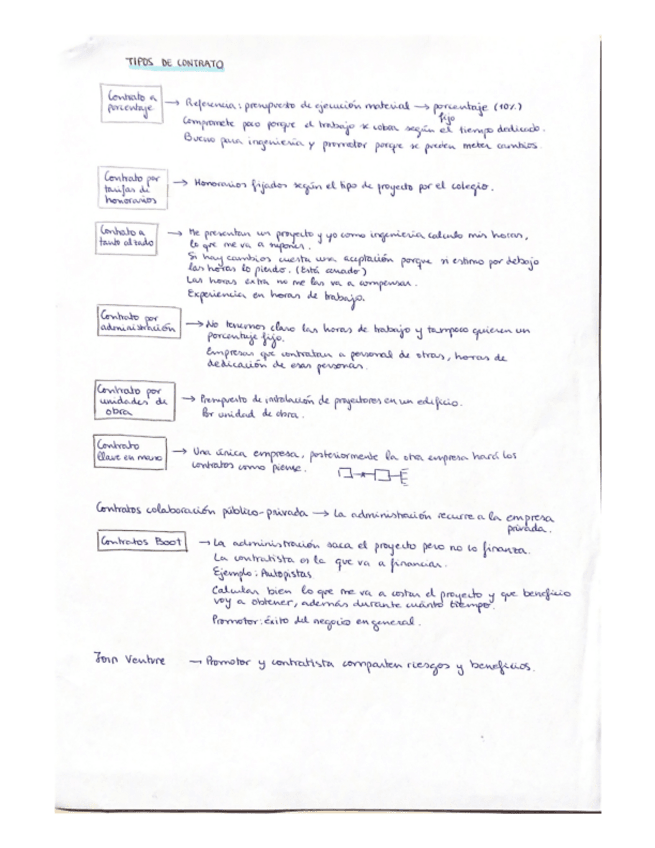 TIPOS DE CONTRATO
Contrato a porcentaje → Referencia: presupuesto de ejecución material → porcentaje (10%) fijo
Compromete poco porque el trabajo se cobra según el tiempo dedicado.
Bueno para ingeniería y promotor porque se pueden meter cambios.
Contrato por tarifas de honorarios → Honorarios fijados según el tipo de proyecto por el colegio.
Contrato a tanto alzado → Me presentan un proyecto y yo como ingeniería calculo mis horas,
lo que me va a suponer.
Si hay cambios cuesta una aceptación porque si estimo por debajo
las horas lo pierdo. (Está cerrado)
Las horas extra no me las va a compensar.
Experiencia en horas de trabajo.
Contrato por administración → No tenemos claro las horas de trabajo y tampoco quieren un
porcentaje fijo.
Empresas que contratan a personal de otras, horas de
dedicación de esas personas.
Contrato por unidades de obra → Presupuesto de instalación de proyectores en un edificio.
Por unidad de obra.
Contrato llave en mano → Una única empresa, posteriormente la otra empresa hará los
contratos como piense.
Contratos colaboración público-privada → La administración recurre a la empresa
privada.
Contratos Boot → La administración saca el proyecto pero no lo financia.
La contratista es la que va a financiar.
Ejemplo: Autopistas
Calcular bien lo que me va a costar el proyecto y que beneficio
voy a obtener, además durante cuánto tiempo.
Promotor: éxito del negocio en general.
Join Venture → Promotor y contratista comparten riesgos y beneficios.